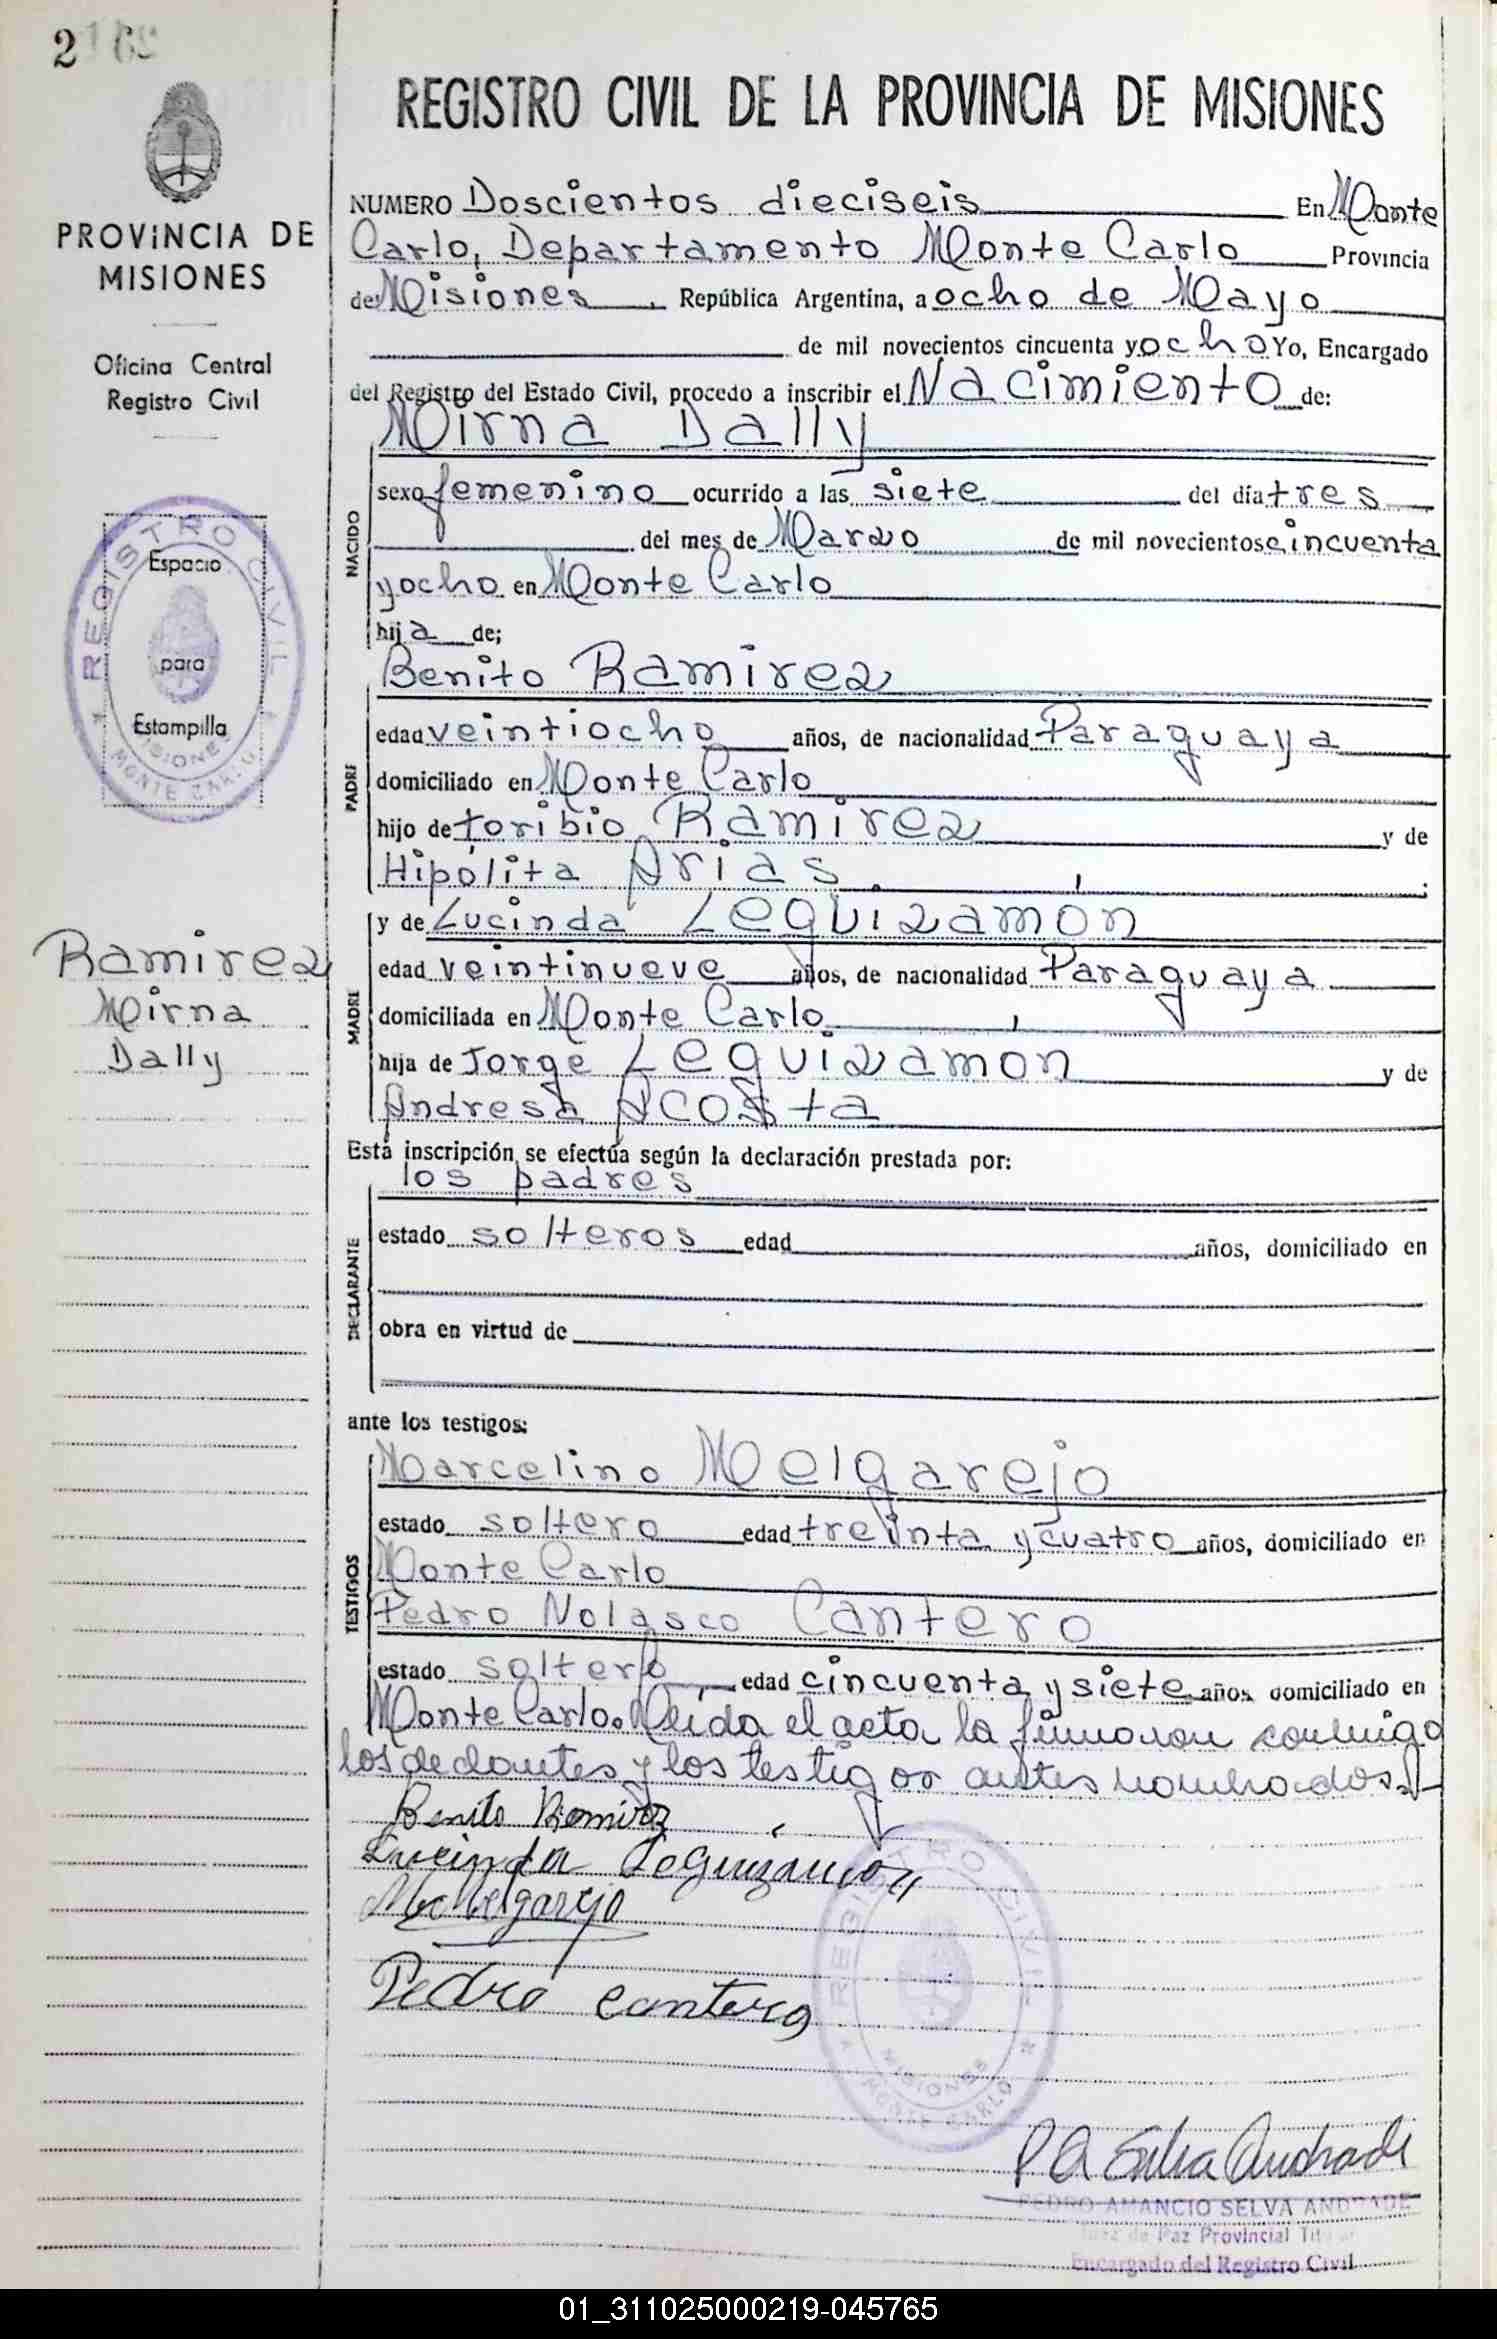 2169
REGISTRO CIVIL DE LA PROVINCIA DE MISIONES
PROVINCIA DE
MISIONES
Oficina Central
Registro Civil
REGISTRO CIVIL
Espacio
para
Estampilla
MISIONES
MONTE CARLO
Ramirez
Mirna
Dally
NUMERO Doscientos dieciseis En Monte
Carlo, Departamento Monte Carlo Provincia
de Misiones, República Argentina, a ocho de Mayo
de mil novecientos cincuenta y ocho Yo, Encargado
del Registro del Estado Civil, procedo a inscribir el Nacimiento de:
Mirna Dally
NACIDO
sexo femenino ocurrido a las siete del día tres
del mes de Marzo de mil novecientos cincuenta
y ocho en Monte Carlo
hija de;
Benito Ramirez
PADRE
edad veintiocho años, de nacionalidad Paraguaya
domiciliado en Monte Carlo
hijo de toribio Ramirez y de
Hipólita Arias.
MADRE
y de Lucinda Leguizamón
edad veintinueve años, de nacionalidad Paraguaya
domiciliada en Monte Carlo
hija de Jorge Leguizamón y de
Andresa Acosta
Esta inscripción se efectúa según la declaración prestada por:
los padres
DECLARANTE
estado solteros edad años, domiciliado en
obra en virtud de
ante los testigos:
Marcelino Melgarejo
TESTIGOS
estado soltero edad treinta y cuatro años, domiciliado en
Monte Carlo
Pedro Nolasco Cantero
estado soltero edad cincuenta y siete años domiciliado en
Monte Carlo. Leida el acta la firmaron conmigo
los declantes y los testigos antes nombrados.
Benito Ramirez
Lucinda Leguizamon
Melgarejo
Pedro Cantero
REGISTRO CIVIL
MISIONES
MONTE CARLO
P A Selva Andrade
PEDRO AMANCIO SELVA ANDRADE
Juez de Paz Provincial Titular
Encargado del Registro Civil
01_311025000219-045765